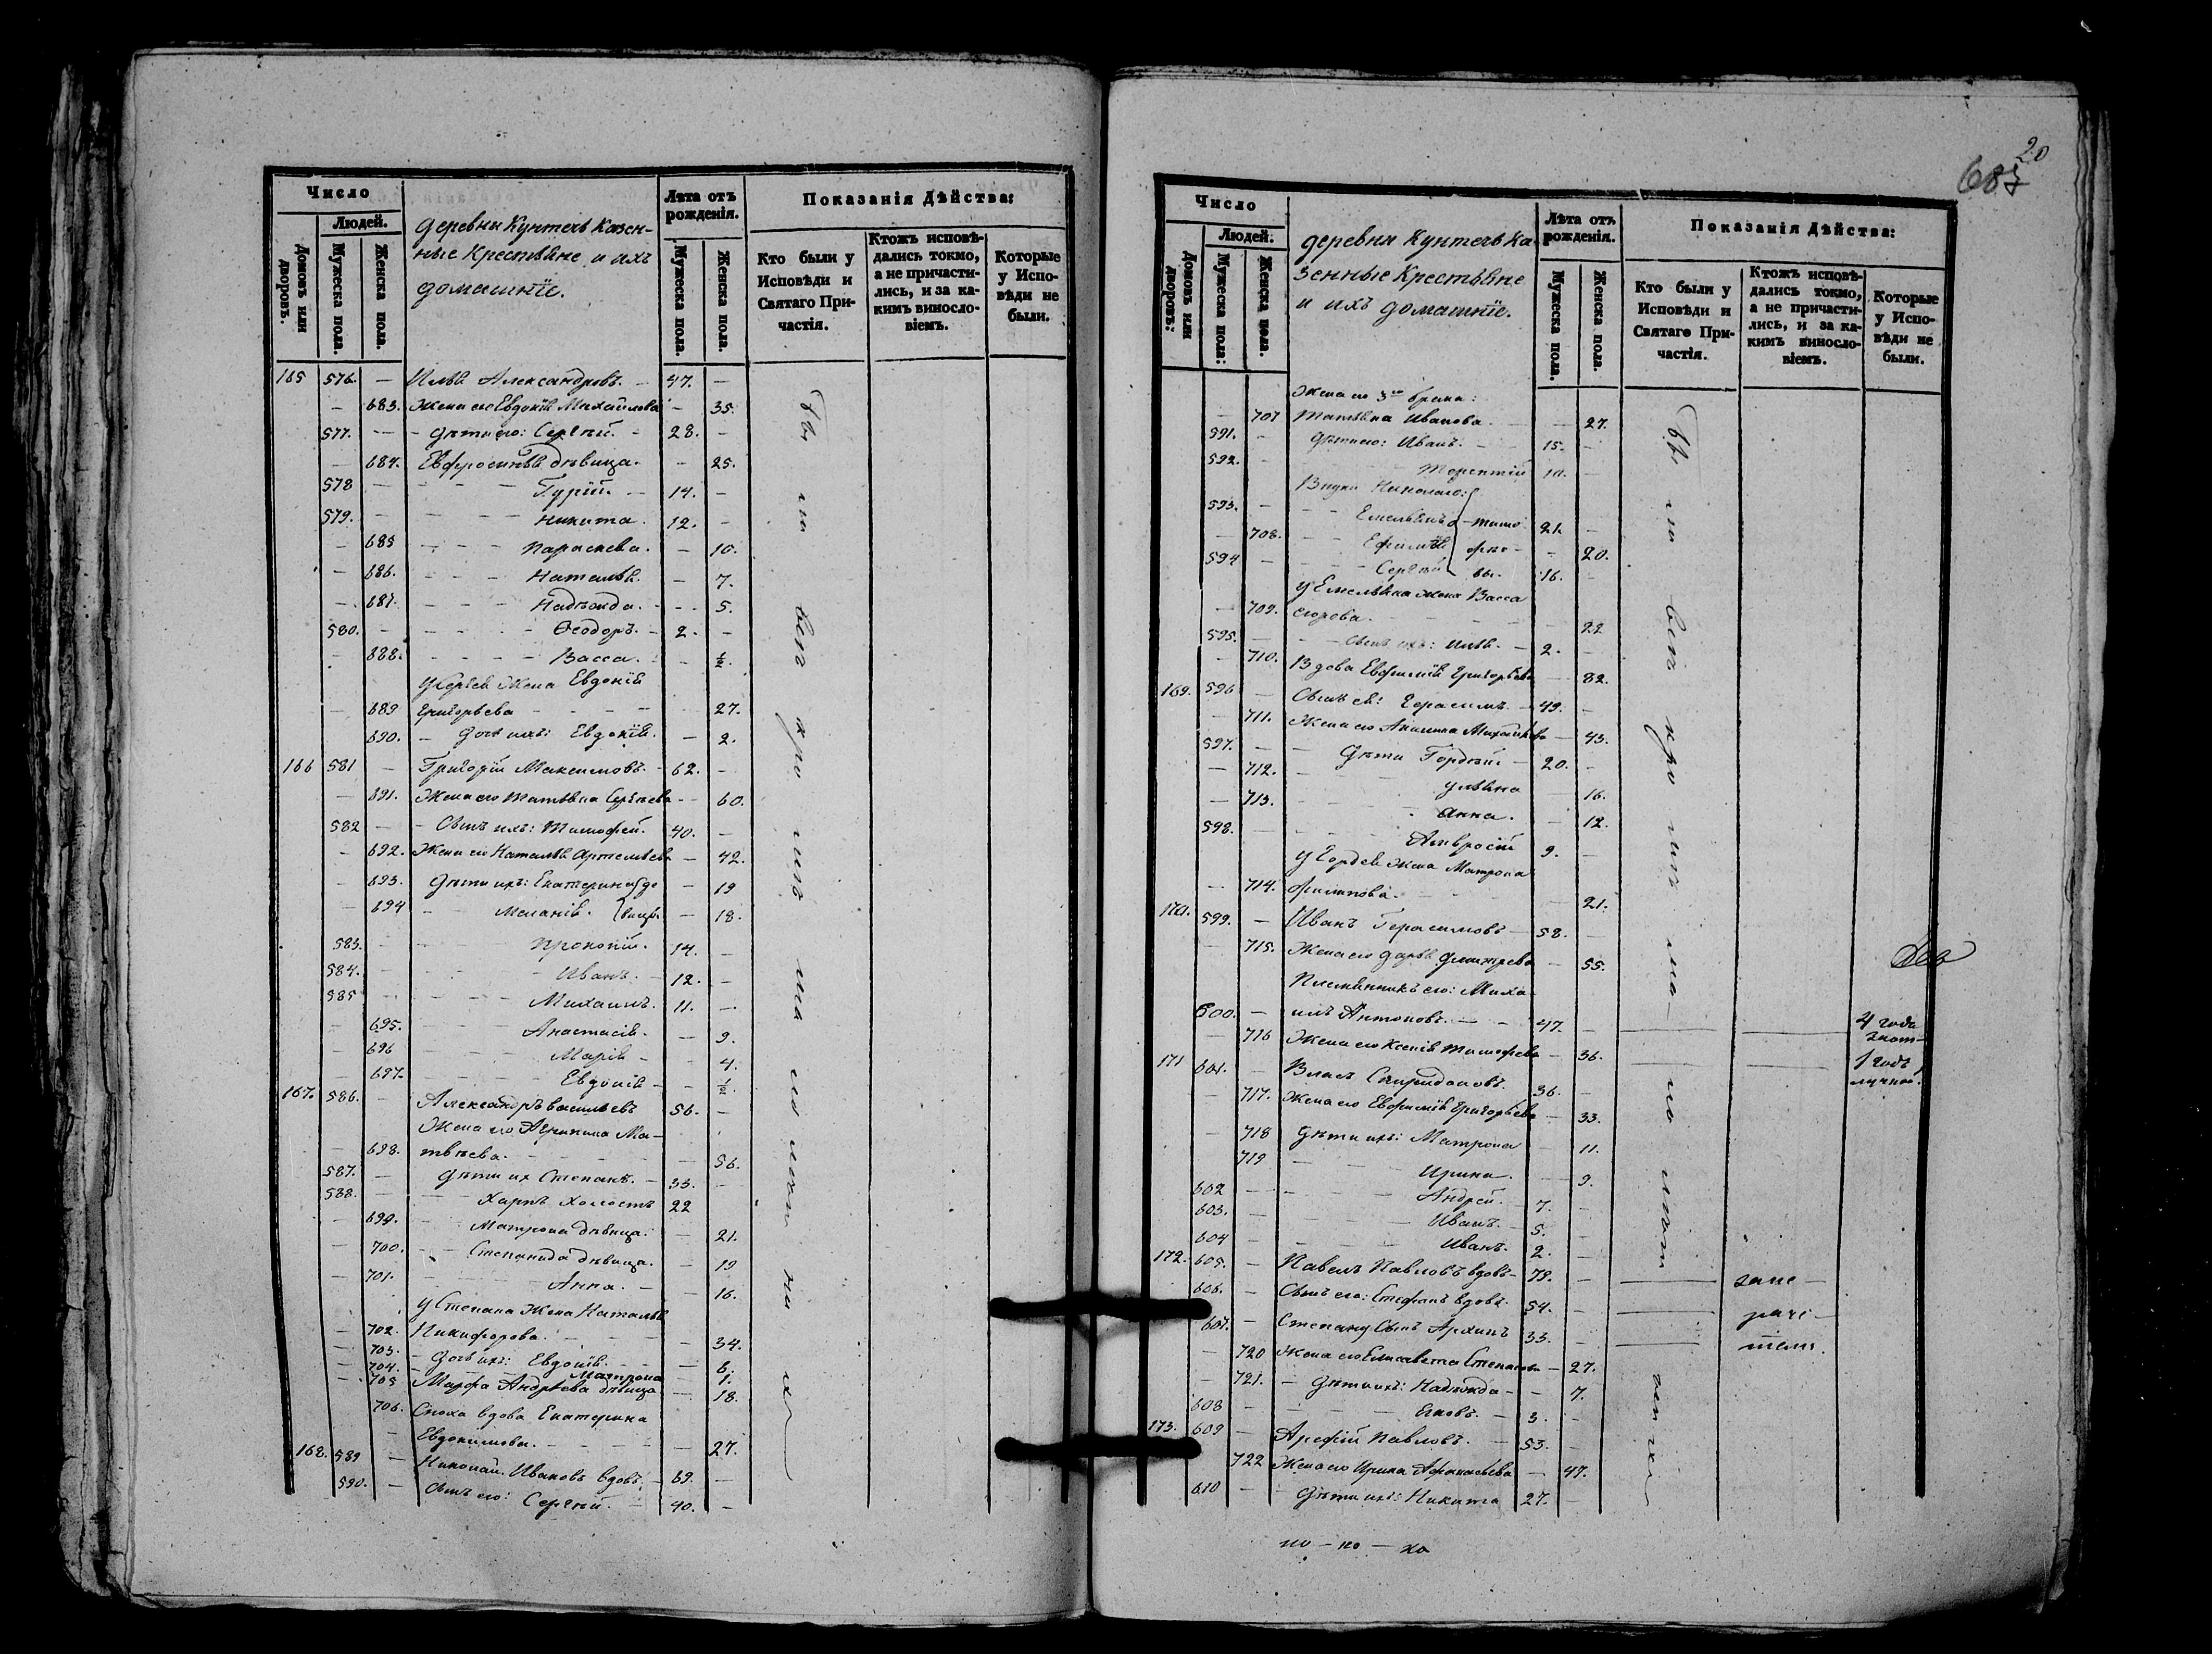 Число
Людей.
Домовъ или дворовъ.
Мужеска пола.
Женска пола.
Деревни Кунтечь Казен-
ные Крестьяне и ихъ
домашнїе.
Лѣта отъ рожденія.
Мужеска пола.
Женска пола.
Показанія Дѣйства:
Кто были у Исповѣди и Святаго При-частія.
Ктожъ исповѣ-дались токмо, а не причасти-лись, и за ка-кимъ виносло-віемъ.
Которые у Испо-вѣди не были.
165 576. — Илья Александровъ. — 47. —
— 683. Жена его Евдокія Михайлова — 35.
577. — дѣти его: Сергѣй. — 28. —
— 684. Евфросинья дѣвица. — 25.
578 — Гурій. — 14. —
579. — Никита. 12. —
— 685 Параскева. — 10.
— 686. Наталья. — 7.
— 687. Надежда. — 5.
580. — Ѳеодоръ. — 2. —
— 688. Васса. — ½.
У Сергѣя Жена Евдокія
— 689 Григорьева — 27.
690. — дочь ихъ: Евдокія. — 2.
166 581 — Григорій Максимовъ. — 62. —
— 691. Жена его Татьяна Сергѣева — 60.
582 — Сынъ ихъ: Тимофей. 40. —
— 692. Жена его Наталья Артемьева — 42.
— 693. Дѣти ихъ: Екатерина де — 19
— 694 — Меланія. вицы. — 18.
583. — Прокопій. 14. —
584. — Иванъ. — 12. —
585 — Михаилъ. 11. —
— 695. Анастасія. — 9.
— 696 Марія — 4.
— 697. Евдокія — ½.
167. 586. — Александръ Васильевъ 56. —
Жена его Агрипина Ма-
— 698. твѣева. — 56.
587. — Дѣти их Степанъ. — 33. —
588. — Харпъ холостъ 22
— 699. Матрона дѣвица. — 21.
— 700. — Степанида дѣвица. — 19
— 701. Анна. — 16.
У Степана Жена Наталья
— 702. Никифорова. — 34.
— 703. — Дочь ихъ: Евдокія. — 6.
— 704. Матрона — 1.
— 705 Марфа Андрѣева дѣвица — 18.
706. Сноха вдова Екатерина
— Евдокимова. — 27.
168. 589 — Николай Ивановъ вдовъ. — 69. —
590. — Сынъ его: Сергѣй 40. —
20
687
Число
Людей.
Домовъ или дворовъ:
Мужеска пола:
Женска пола.
Деревни Кунтечь Ка-
зенные Крестьяне
и ихъ домашнїе.
Лѣта отъ рожденія.
Мужеска пола.
Женска пола.
Показанія Дѣйства:
Кто были у Исповѣди и Святаго При-частія.
Ктожъ исповѣ-дались токмо, а не причасти-лись, и за ка-кимъ виносло-віемъ.
Которые у Испо-вѣди не были.
Жена его 3го брака:
— 707 Татьяна Иванова. — 27.
591. — Дѣти его: Иванъ. — 15. —
592. — Терентій —
Внуки Николаю:
593. — Емельянъ — Тимо 21. —
— 708. Ефимія офѣе — 20.
594 — Сергѣй вы. 16. —
У Емельяна Жена Васса
— 709. Егорова. — 22
595. — Сынъ ихъ: Илья. — 2. —
— 710. Вдова Евфимія Григорьева — 82.
169. 596 — Сынъ ея: Герасимъ. — 49. —
— 711. Жена его Акилина Михайлова — 43.
597. — Дѣти Гордѣй — 20. —
— 712. Ульяна — 16.
— 713. Анна. — 12.
598. — Амвросій 9. —
У Гордея Жена Матрона
— 714. Филипова. — 21.
170. 599. — Иванъ Герасимовъ — 58. —
— 715. Жена его Дарья Дмитрева — 55.
Племянникъ его: Миха-
600. — илъ Антоновъ. — 47. — 4 года
— 716 Жена его Ксенія Тимофеева — 36. 1 годъ
171 601. — Власъ Спиридоновъ. 36. —
— 717. Жена его Евфимія Григорьева — 33.
— 718 Дѣти ихъ: Матрона — 11.
719 — Ирина. — 9.
602 — Андрей. 7. —
603. — Иванъ. — 5. —
604 — Иванъ. 2. —
172. 605. — Павелъ Павловъ вдовъ — 78. —
606. — Сынъ его: Стефанъ вдовъ. 54. —
607. — Степану Сынъ Архипъ 33. —
— 720 Жена его Елисавета Степанова — 27.
— 721. — Дѣти ихъ: Надежда — 7.
608 — Яковъ. — 3. —
173. 609 — Арефій Павловъ. — 53. —
722 Жена его Ирина Афанасьева — 47.
610 — Дѣти ихъ: Никита 27. —